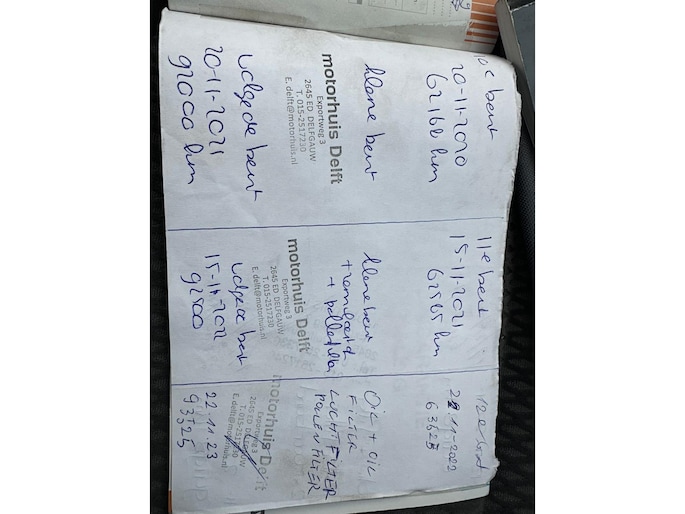 20-11-2020
62160 km
kleine beurt
motorhuis Delft
Exportweg 3
2645 ED DELFGAUW
T. 015-2517230
E. delft@motorhuis.nl
volgende beurt
20-11-2021
92000 km
11e beurt
15-11-2021
62565 km
kleine beurt
+ pollenfilter
motorhuis Delft
Exportweg 3
2645 ED DELFGAUW
T. 015-2517230
E. delft@motorhuis.nl
volgende beurt
15-11-2022
92500
12e beurt
22.11-2022
63525
OIL + OIL
FILTER
LUCHTFILTER
POLLENFILTER
motorhuis Delft
Exportweg 3
2645 ED DELFGAUW
T. 015-2517230
E. delft@motorhuis.nl
22.11.23
93525